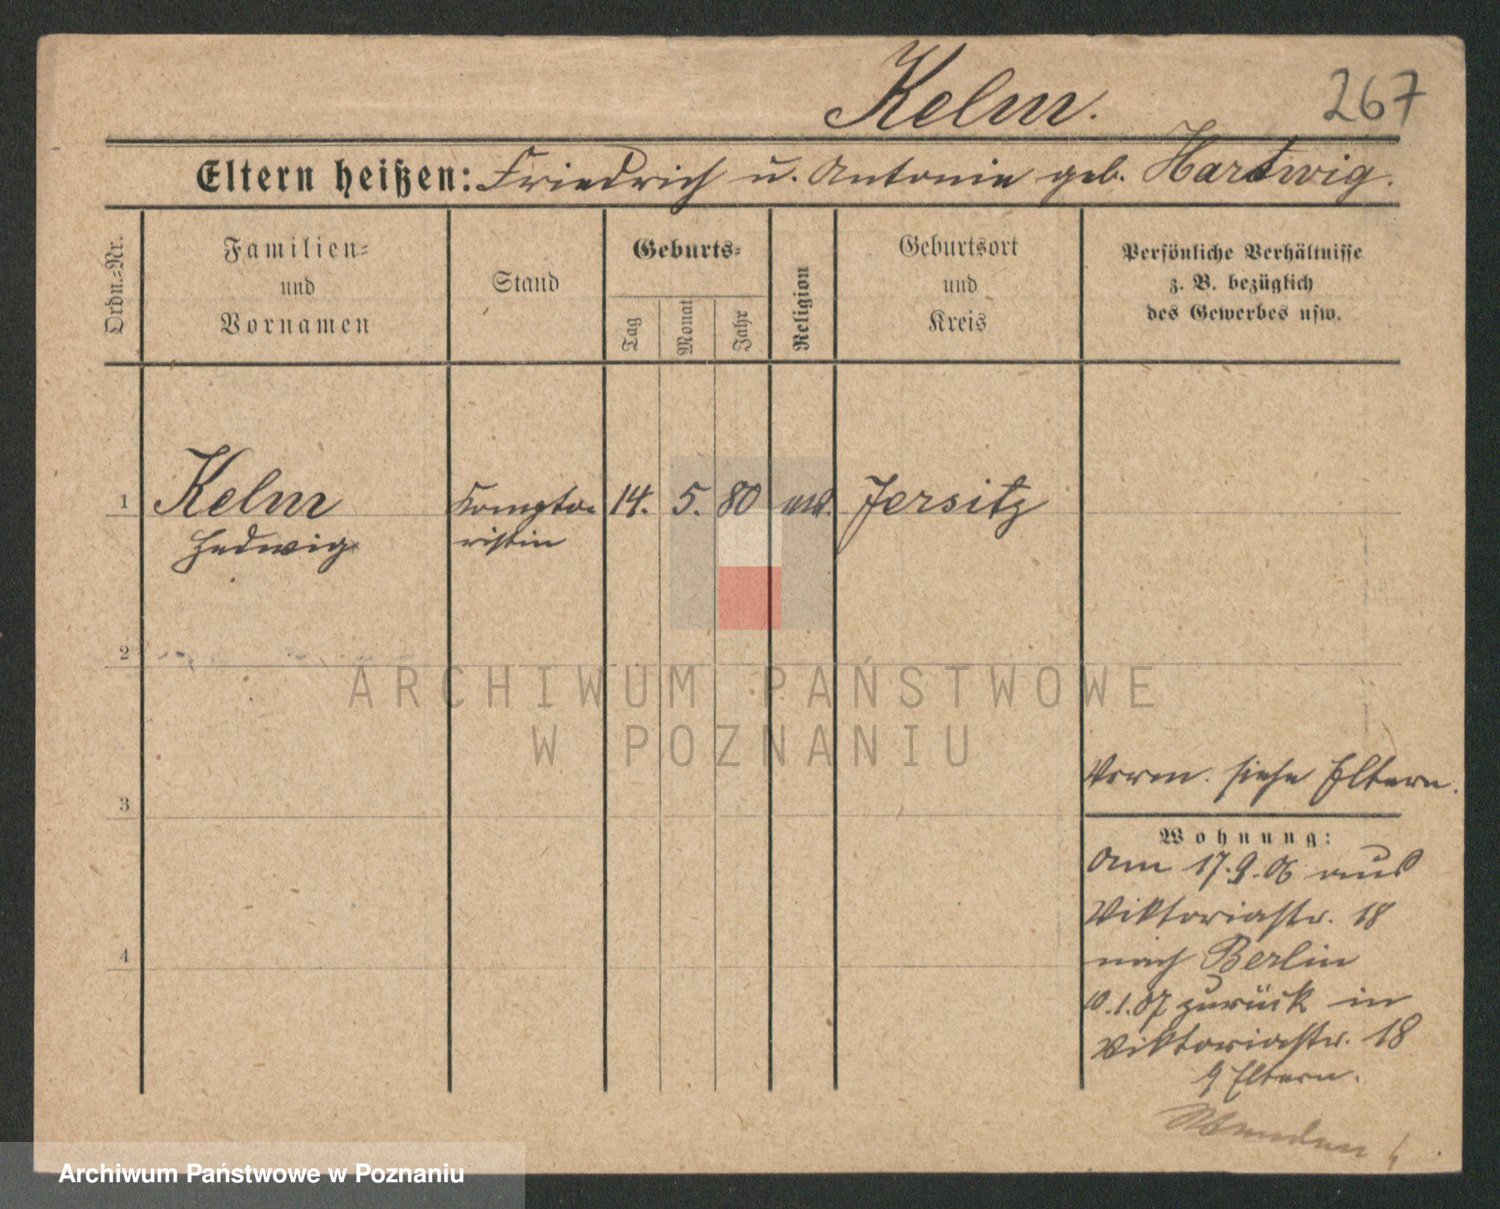 Kelm.
267
Eltern heißen: Friedrich u. Antonie geb. Hartwig.
Ordn.-Nr.
Familien-
und
Vornamen
Stand
Geburts-
Tag
Monat
Jahr
Religion
Geburtsort
und
Kreis
Persönliche Verhältnisse
z. B. bezüglich
des Gewerbes usw.
1 Kelm Kompto- 14. 5. 80 Jersitz
Hedwig ristin
2
3
4
Vorm. siehe Eltern.
Wohnung:
Am 17.9.06 aus
Viktoriastr. 18
nach Berlin
10.1.07 zurück in
Viktoriastr. 18
Eltern.
ARCHIWUM PAŃSTWOWE
W POZNANIU
Archiwum Państwowe w Poznaniu